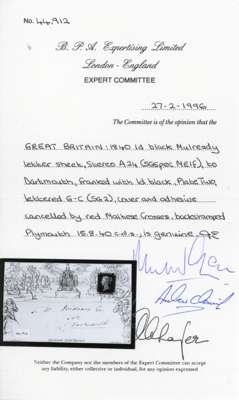 No. 44,912
B. P. A. Expertising Limited
London - England
EXPERT COMMITTEE
27-2-1996
The Committee is of the opinion that the
GREAT BRITAIN: 1840 1d black Mulready
letter sheet, Stereo A24 (SGSpec ME1f), to
Dartmouth, franked with 1d black, Plate Two,
lettered G-C (SG2), cover and adhesive
cancelled by red Maltese Crosses, backstamped
Plymouth 15.8.40 c.d.s., is genuine.
Dartmouth
Neither the Company nor the members of the Expert Committee can accept
any liability, either collective or individual, for any opinion expressed